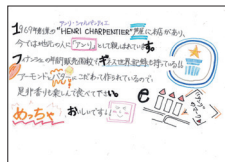 アンリ・シャルパンティエ
1969年創業の"HENRI CHARPENTIER"芦屋にお店があり、
今では地元の人に「アンリ」として親しまれています。
フィナンシェの年間販売個数でギネス世界記録も持っている!!
アーモンドとバターにこだわって作られているので、
是非香りも楽しんで食べてみてね
めっちゃ おいしいです!
e